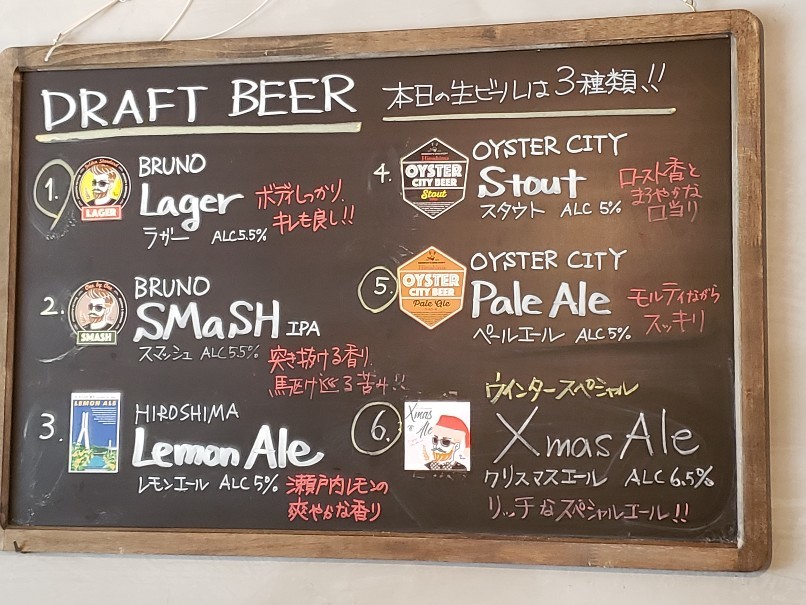 DRAFT BEER
本日の生ビールは3種類!!
1.
BRUNO
Lager
ラガー ALC5.5%
ボディしっかり、
キレも良し!!
LAGER
2.
BRUNO
SMaSH IPA
スマッシュ ALC5.5%
突き抜ける香り、
馬駆け巡る苦み!!
One by One
SMASH
3.
HIROSHIMA
Lemon Ale
レモンエール ALC5%
瀬戸内レモンの
爽やかな香り
LEMON ALE
4.
OYSTER CITY
Stout
スタウト ALC5%
ロースト香と
まろやかな
口当り
Hiroshima
OYSTER
CITY BEER
Stout
5.
OYSTER CITY
Pale Ale
ペールエール ALC5%
モルティながら
スッキリ
Hiroshima
OYSTER
CITY BEER
Pale Ale
6.
ウインタースペシャル
Xmas Ale
クリスマスエール ALC6.5%
リッチなスペシャルエール!!
Xmas
Ale